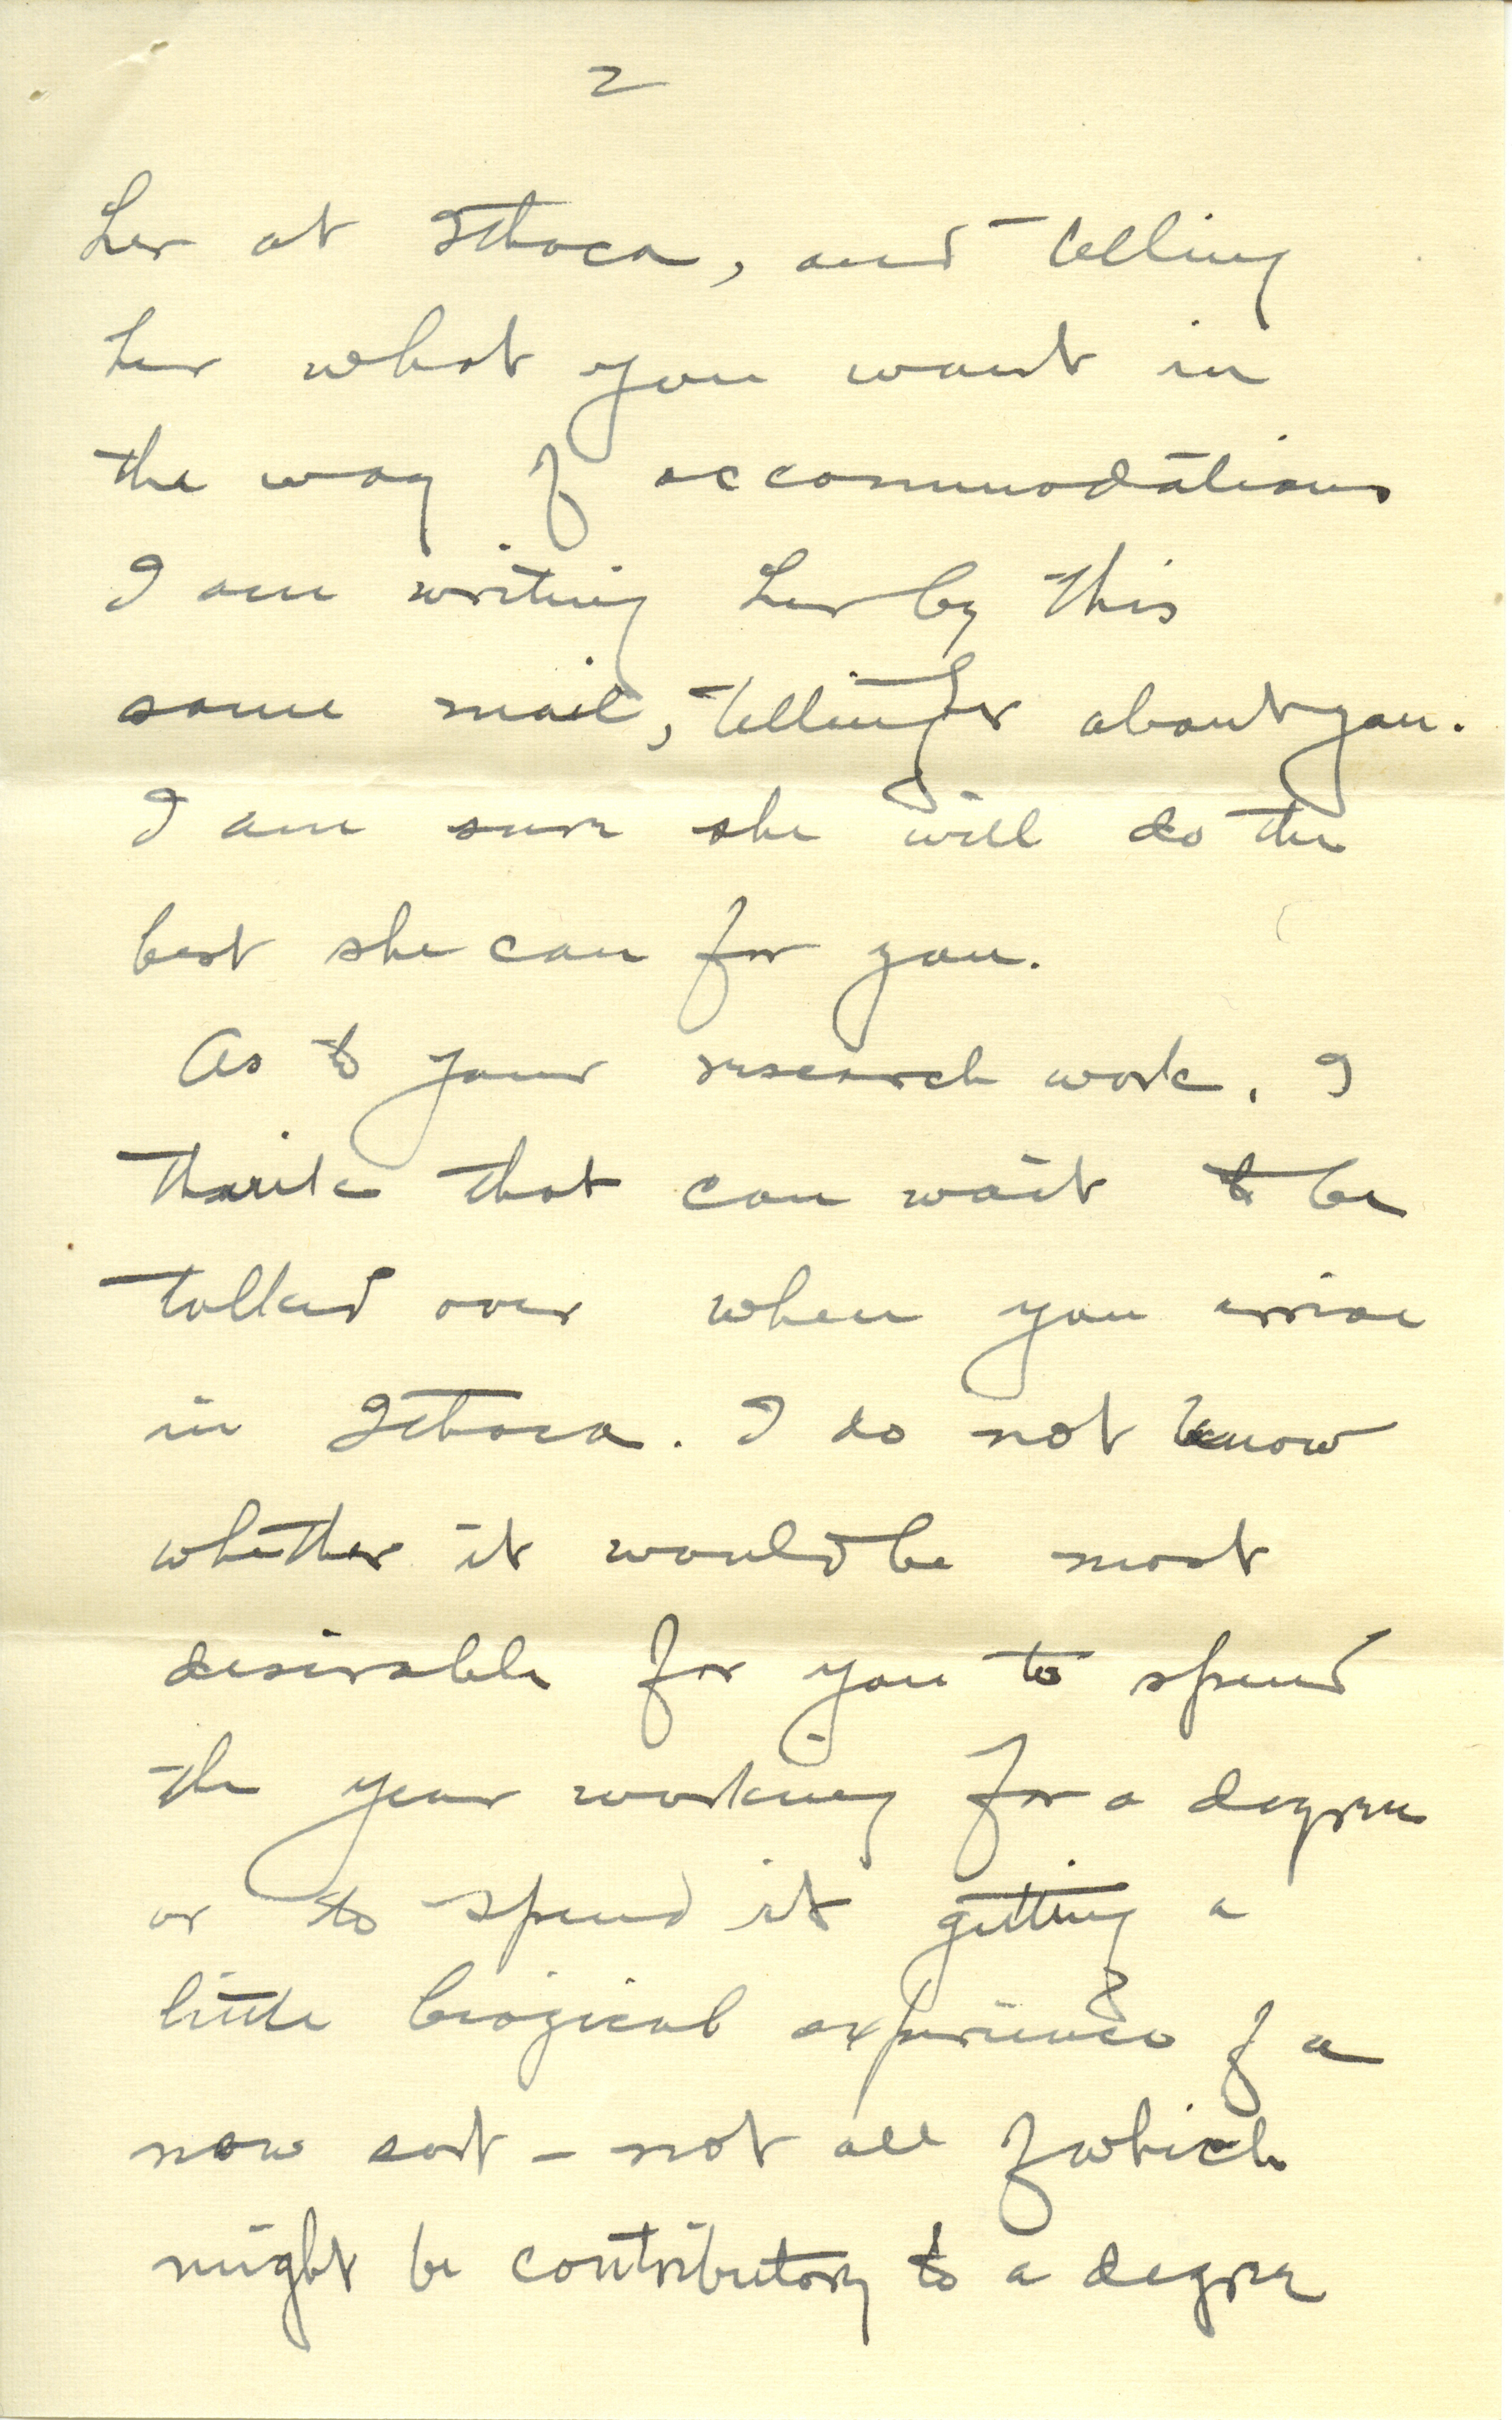 2
her at Ithaca, and telling
her what you want in
the way of accommodations
I am writing her by this
same mail, telling her about you.
I am sure she will do the
best she can for you.
As to your research work, I
think that can wait to be
talked over when you arrive
in Ithaca. I do not know
whether it would be most
desirable for you to spend
the year working for a degree
or to spend it getting a
little biogical experience of a
new sort - not all of which
might be contributory to a degree